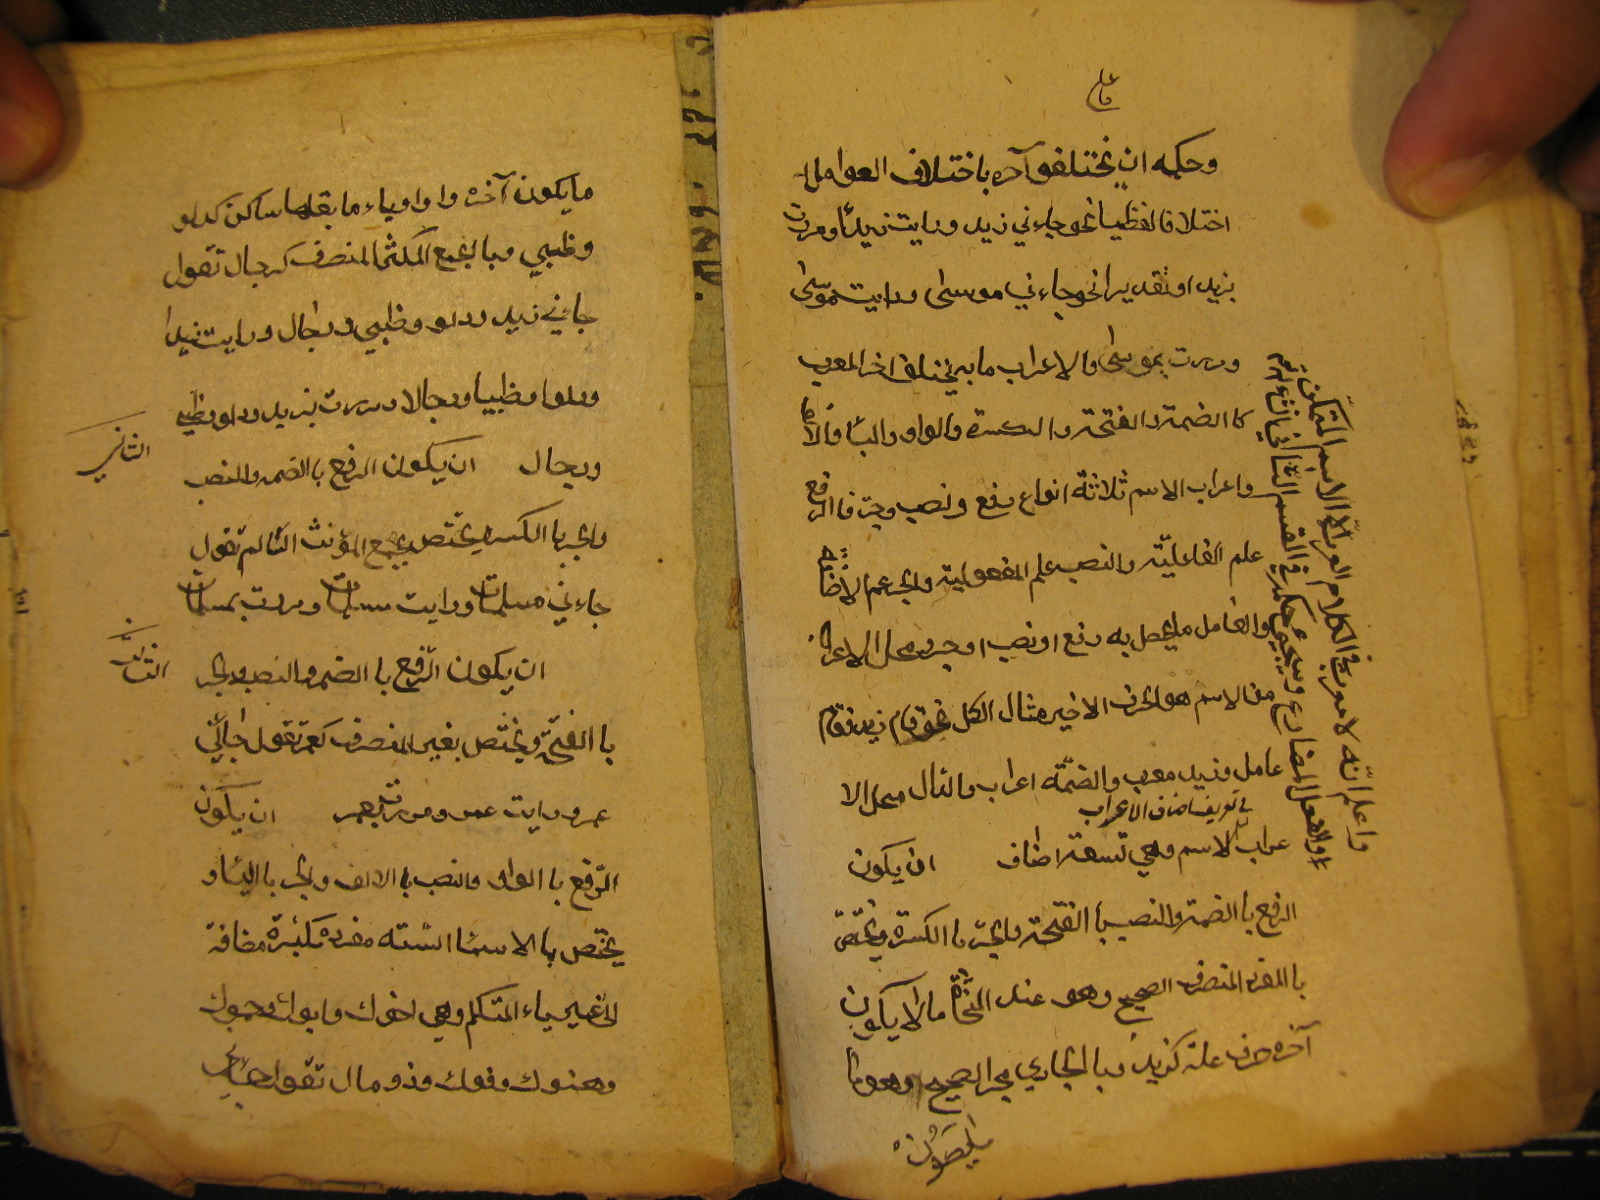 وحكمه ان يختلف آخره باختلاف العوامل
اختلافا لفظيا نحو جاءني زيد ورايت زيدًا ومررت
بزيد او تقديرا نحو جاءني موسى ورايت موسى
ومررت بموسى والاعراب ما به يختلف اخر المعرب
كا الضمة والفتحة والكسرة والواو والياء والالف
واعراب الاسم ثلاثة انواع رفع ونصب وجر فا الرفع
علم الفاعليّة والنصب علم المفعولية والجر علم الاضافة
والعامل ما يحصل به رفع او نصب او جر ومحل الاعراب
من الاسم هو الحرف الاخير مثال الكل نحو قام زيد فقام
عامل وزيد معرب والضمّة اعراب والدال محل الا
في تعريف اصناف الاعراب
عراب الاسم وهي تسعة اصناف ان يكون
الرفع با الضمة والنصب با الفتحة والجرّ با الكسرة ويختصّ
با المفرد المنصرف الصحيح وهو عند النحاة ما لا يكون
آخره حرف علة كزيد وبا الجاري مجرا الصحيح وهو ما
ما يكون
واعلم انّه لا معرب في الكلام العرب الا الاسم المتمكن
والفعل المضارع وسيجيء حكمه في القسم الثاني
ما يكون آخره واوا وياء ما بقلها ساكن كدلو
وظبي وبا الجمع المكسّر المنصرف كرجال تقول
جاءني زيد ودلو وظبي ورجال ورايت زيدا
ودلوا وظبيا ورجالا ومررت بزيد ودلو وظبي
ورجال ان يكون الرفع با الضمه والنصب
الثاني
والجر با الكسره يختص بجمع المؤنث السّالم تقول
جاءني مسلمات ورايت مسلمات ومررت بمسلمات
ان يكون الرّفع با الضم والنصب والجر
الثالث
با الفتحة ويختص بغير المنصرف كعمر تقول جاءني
عمر ورايت عمر ومررت بعمر ان يكون
الرّفع با الواو والنصب با الالف والجر با الياء و
يختص با الاسماء السّته مفردة مكبّرة مضافة
الى غير ياء المتكلم وهي اخوك وابوك وحموك
وهنوك وفوك وذو مال تقول جاءني